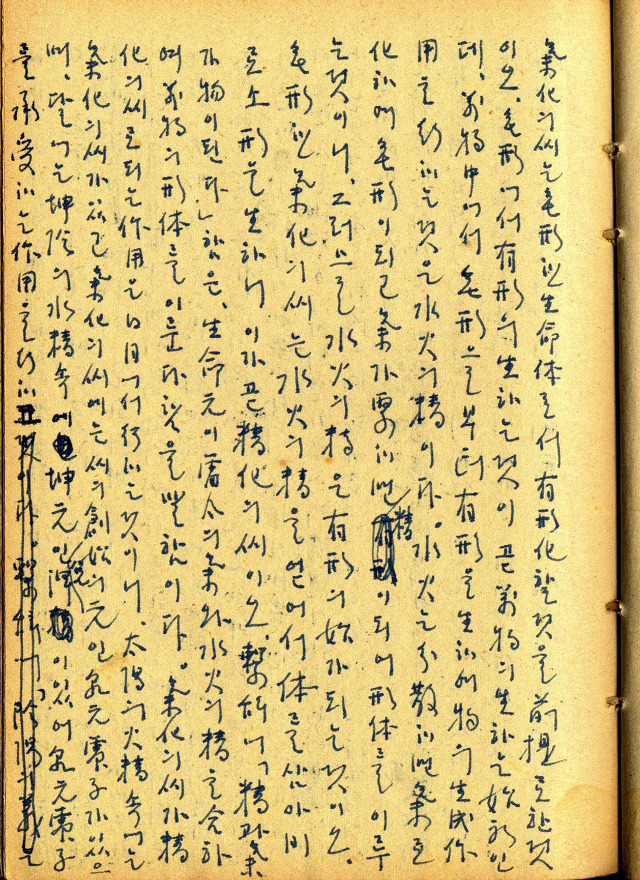 氣化의 씨는 무형인 生命体로서 有形化할 것을 前提로 한 것
이오. 無形에서 有形의 生하는 것이 곧 萬物의 生하는 始初인
데, 萬物中에서 無形으로부터 有形을 生하여 物의 生成作
用을 行하는 것은 水火의 精이다. 水火는 分散하면 氣로
化하여 無形이 되고 氣가 聚하면 精이 되어 形体를 이루
는 것이니, 그러므로 水火의 精은 有形의 始가 되는 것이오.
無形인 氣化의 씨는 水火의 精을 얻어서 体를 삼아 비
로소 形을 生하니 이가 곧 精化의 씨이오. 繫辭에「精과 氣
가 物이 된다」함은, 生命元이 雷火의 氣와 水火의 精을 含하
여 萬物의 形体를 이룬다 함을 말함이다. 氣化의 씨가 精
化의 씨로 되는 作用은 日月에서 行하는 것이니, 太陽의 火精 속에는
氣化의 씨가 있고 氣化의 씨에는 씨의 創始의 元인 乾元 震子가 있으
며, 달에는 坤陰의 水精 속에 坤元인 이 있어 乾元 震子
를 承受하는 作用을 行하